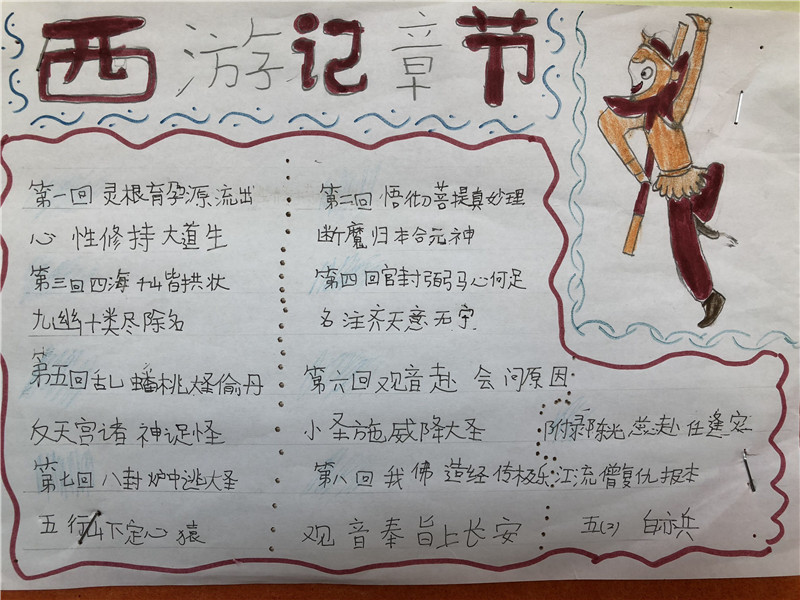 西游记章节
第一回 灵根育孕源流出
心性修持大道生
第二回 悟彻菩提真妙理
断魔归本合元神
第三回四海千山皆拱状
九幽十类尽除名
第四回官封弼马心何足
名注齐天意无宁
第五回乱蟠桃大圣偷丹
反天宫诸神捉怪
第六回观音赴会问原因
小圣施威降大圣
第七回 八封炉中逃大圣
五行山下定心猿
第八回 我佛造经传极乐
观音奉旨上长安
附录陈光蕊赴任逢灾
江流僧复仇报本
五(2) 白亦兵